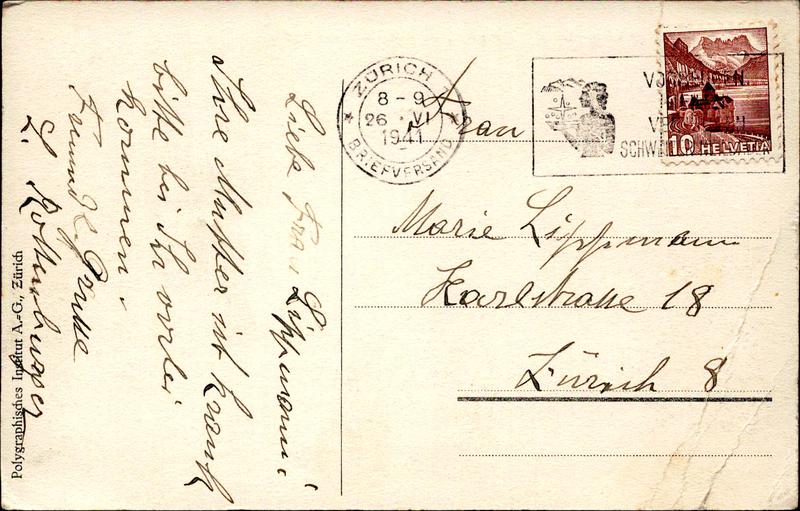 Liebe Frau Lippmann!
Ihre Mutter ist krank
bitte bei Ihr
kommen.
Freundl. Grüsse
Polygraphisches Institut A.-G., Zürich
ZÜRICH
8 – 9
26 · VI
1941
BRIEFVERSAND
10 HELVETIA
Frau
Marie Lippmann
Karlstrasse 18
Zürich 8